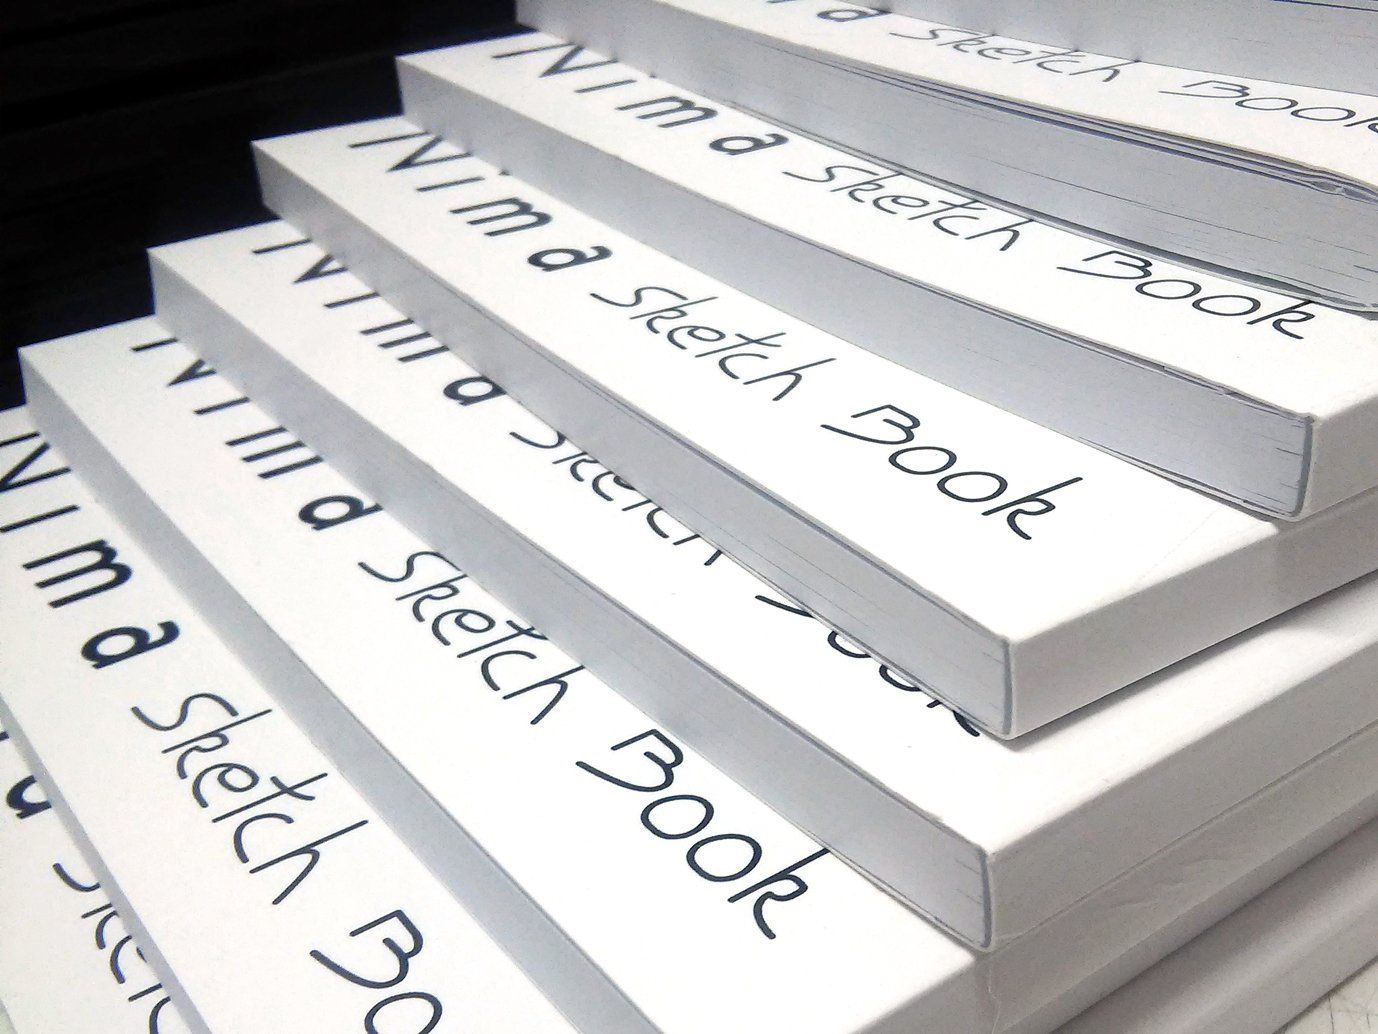 a Sketch Book
Nima Sketch Book
Nima Sketch Book
Nima Sketch Book
Nima Sketch Book
Nima Sketch Bo
a Sketc